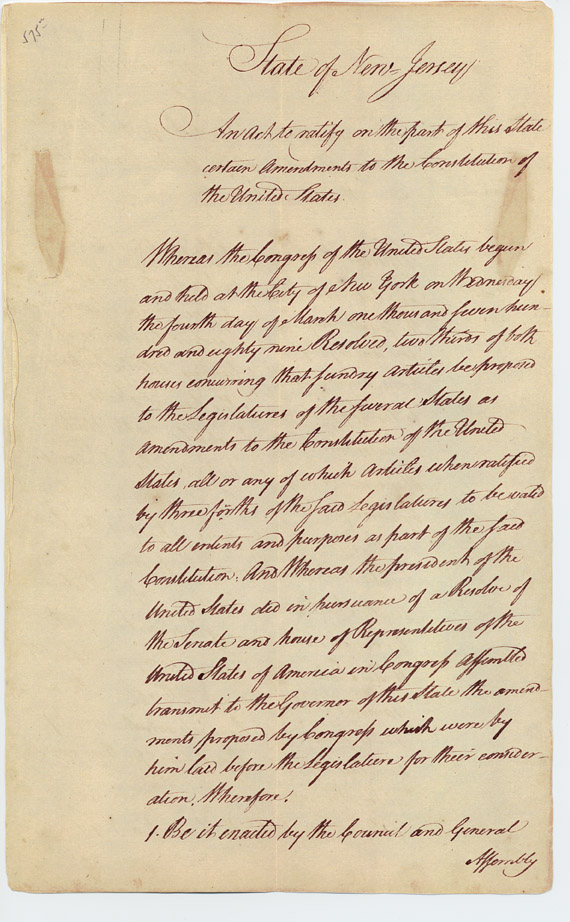 575
State of New-Jersey
An Act to ratify on the part of this State
certain Amendments to the Constitution of
the United States.
Whereas the Congress of the United States begun
and held at the City of New York on Wednesday
the fourth day of March one thousand seven hun-
dred and eighty nine Resolved, two thirds of both
houses concurring that sundry Articles be proposed
to the Legislatures of the several States as
amendments to the Constitution of the United
States, all or any of which Articles when ratified
by three forths of the said Legislatures to be valid
to all intents and purposes as part of the said
Constitution. And Whereas the president of the
United States did in pursuance of a Resolve of
the Senate and house of Representitives of the
United States of America in Congress Assembled
transmit to the Governor of this State the amend-
ments proposed by Congress which were by
him laid before the Legislature for their consider-
ation. Wherefore.
1. Be it enacted by the Council and General
Assembly